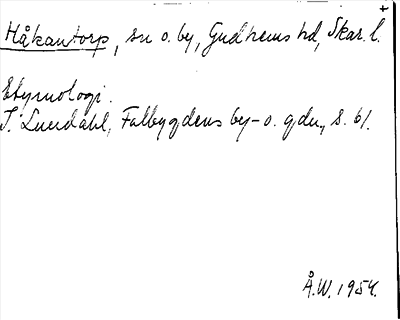 +
Håkantorp, sn o. by, Gudhems hd, Skar. l.
Etymologi.
I. Lundahl, Falbygdens by- o. gdn, s. 61.
Å.W. 1954.